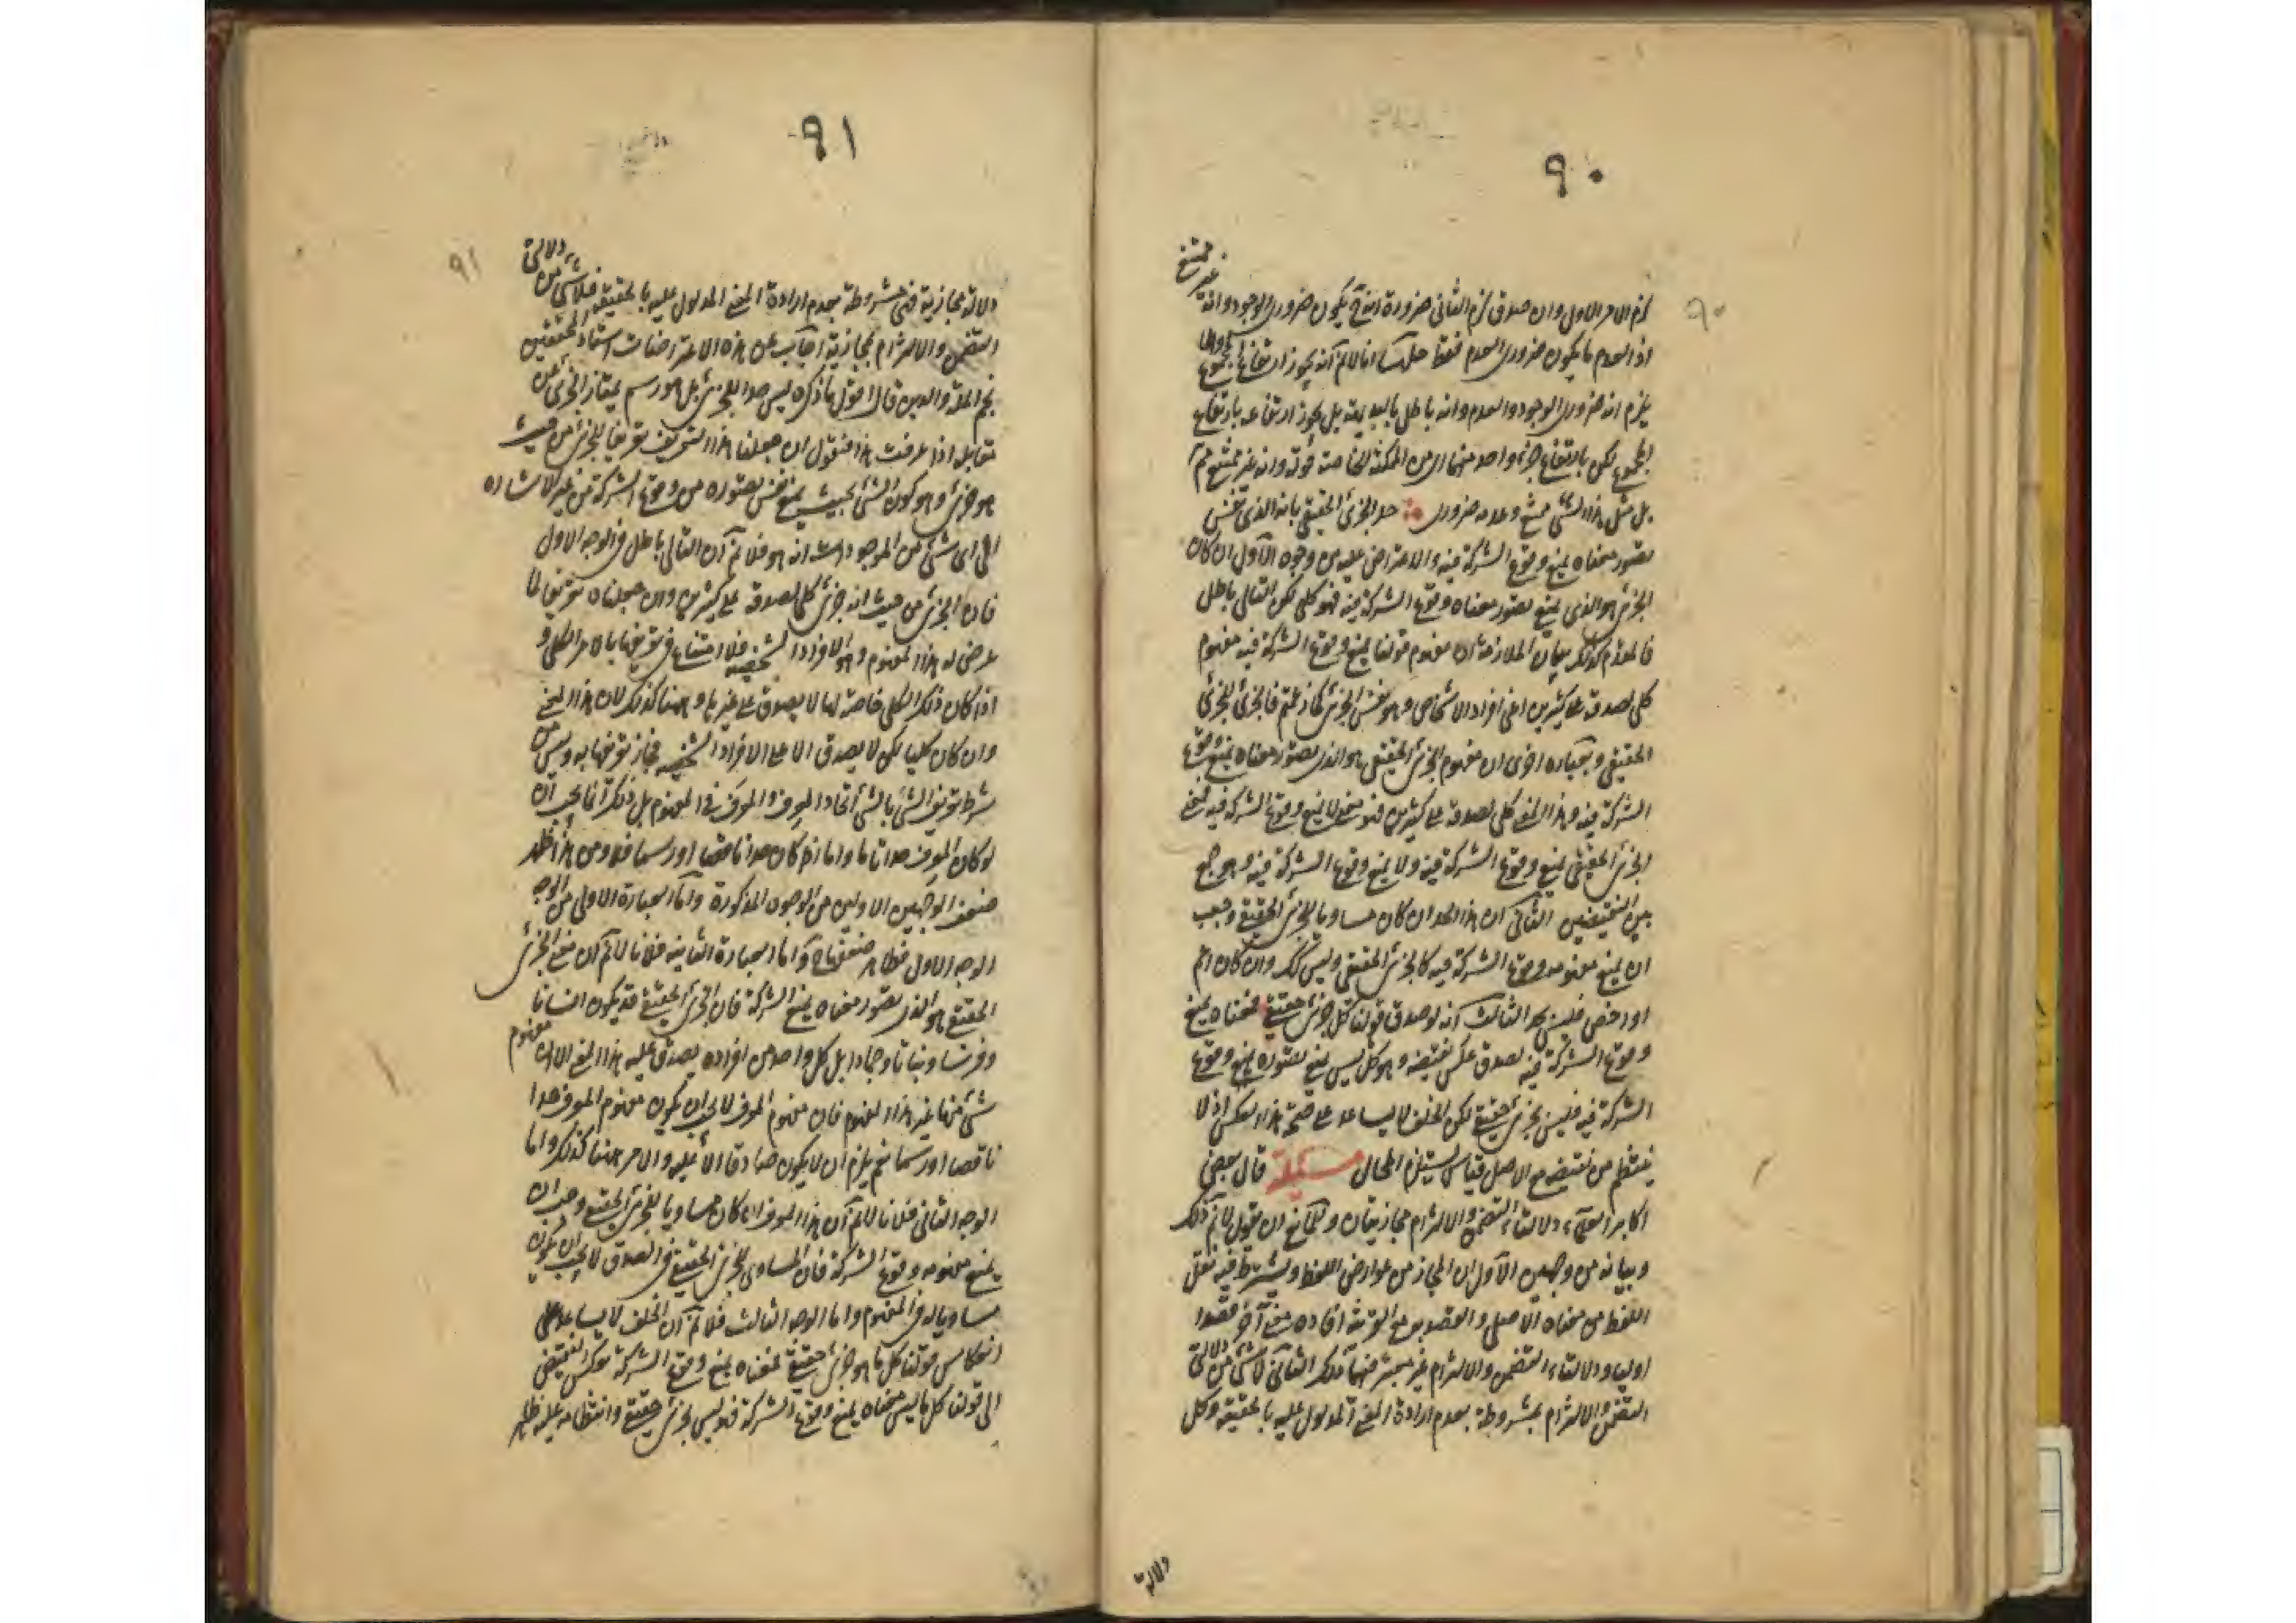 ٩٠
غير ممتنع
لزم الامر الاول وان صدق لزم الثانى ضرورة انه ح يكون ضرورى الوجود وانه
اذ العدم ما يكون ضرورى العدم فقط حله انا لانم انه يجوز ارتفاعها بمجموع والا
يلزم انه ضرورى الوجود والعدم وانه باطل بالبديهة بل يجوز ارتفاعه بارتفاع
المجموع لكن بارتفاع جزء واحد منهما من الممكنة الخاصة فوته وانه غير ممتنع ثم
بل مثل هذا الشئ ممتنع وعدمه ضرورى حد الجزئى الحقيقى بانه الذى نفس
تصور معناه يمنع وقوع الشركة فيه والاعتراض عليه من وجوه الاول ان كان
الجزئى هو الذى يمنع تصور معناه وقوع الشركة فيه فهو كلى لكن التالى باطل
فالمقدم كذلك بيان الملازمة ان مفهوم قولنا يمنع وقوع الشركة فيه مفهوم
كلى لصدقه على كثيرين اعنى افراد الاشخاص وهو نفس الجزئى كما زعمتم فالجزئى الجزئى
الحقيقى وبعبارة اخرى ان مفهوم الجزئى الحقيقى هو الذى تصور معناه يمنع وقوع
الشركة فيه وهذا المعنى كلى لصدقه على كثيرين فهو معنى لا يمنع وقوع الشركة فيه فمعنى
الجزئى الحقيقى يمنع وقوع الشركة فيه ولا يمنع وقوع الشركة فيه وهو جمع
بين النقيضين الثانى ان هذا الحد ان كان مساويا للجزئى الحقيقى وجب
ان يمنع مفهومه وقوع الشركة فيه كالجزئى الحقيقى وليس كذلك وان كان اعم
او اخص فليس بحد الثالث انه لو صدق قولنا كل جزئى حقيقى فمعناه يمنع
وقوع الشركة فيه لصدق عكس نقيضه وهو كل ليس يمنع تصوره يمنع وقوع
الشركة فيه فليس بجزئى حقيقى لكن الخلف لا يساعد على صحة هذا العكس اذ لا
ينتظم من نقيضه مع الاصل قياس يستلزم المحال مسئلة قال بعض
اكابر العلماء دلالتا التضمن والالتزام مجازيتان ولمانع ان يقول لا نم ذلك
وبيانه من وجهين الاول ان المجاز من عوارض اللفظ ويشترط فيه نقل
اللفظ من معناه الاصلى والقصد به مع القرينة افادة معنى آخر قصدا
اوليا ودلالتا التضمن والالتزام غير معتبر فيهما ذلك الثانى لا شئ من دلالتى
التضمن والالتزام بمشروطة بعدم ارادة المعنى المدلول عليه بالحقيقة وكل
دلالة
٩١
دلالة مجازية فهى مشروطة بعدم ارادة المعنى المدلول عليه بالحقيقة فلا شئ من دلالتى
التضمن والالتزام بمجازية اجاب عن هذه الاعتراضات استاد المحققين
نجم الملة والدين قال اقول ما ذكره ليس حدا للجزئى بل هو رسم يمتاز الجزئى عن
مقابله اذا عرفت هذا فنقول ان جعلنا هذا التعريف تعريفا للجزئى من حيث
هو جزئى وهو كون الشئ بحيث يمنع نفس تصوره من وقوع الشركة من غير الاشارة
الى اى شئ من الموجودات انه هو فلا نم ان التالى باطل فى الوجه الاول
فان الجزئى من حيث انه جزئى كلى لصدقه على كثيرين وان جعلناه تعريفا لما
عرض له هذا المفهوم وهو الافراد الشخصية فلا امتناع فى تعريفها بالامر الكلى و
اذا كان ذلك الكلى خاصة لها لا يصدق على غيرها وههنا كذلك لان هذا المعنى
وان كان كليا لكن لا يصدق الا على الافراد الشخصية فجاز تعريفها به وليس من
شرط تعريف الشئ بالشئ اتحاد المعرف والمعرف فى المفهوم بل ذلك انما يجب ان
لو كان المعرف حدا تاما واما اذا كان حدا ناقصا او رسما فلا ومن هذا ظهر
ضعف الوجهين الاولين من الوجوه المذكورة واما العبارة الاولى من الوجه
الوجه الاول فظاهر ضعفها ح واما العبارة الثانية فلانا لا نم ان معنى الجزئى
الحقيقى هو الذى تصور معناه يمنع الشركة فان الجزئى الحقيقى قد يكون انسانا
وفرسا ونباتا وجمادا بل كل واحد من افراده يصدق عليه هذا المعنى الا ان مفهوم
شئ منها غير هذا المفهوم فان مفهوم المعرف لا يجب ان يكون مفهوم المعرف حدا
ناقصا او رسما نعم يلزم ان لا يكون صادقا الا عليه والامر ههنا كذلك واما
الوجه الثانى فلانا لا نم ان هذا المعرف ان كان مساويا للجزئى الحقيقى وجب ان
يمنع مفهومه وقوع الشركة فان المساوى للجزئى الحقيقى فى الصدق لا يجب ان يكون
مساويا له فى المفهوم واما الوجه الثالث فلا نم ان الخلف لا يساعد على
انعكاس قولنا كل ما هو جزئى حقيقى فمعناه يمنع وقوع الشركة بعكس النقيض
الى قولنا كل ما ليس معناه يمنع وقوع الشركة فهو ليس بجزئى حقيقى وانتظامه عليه ظاهر